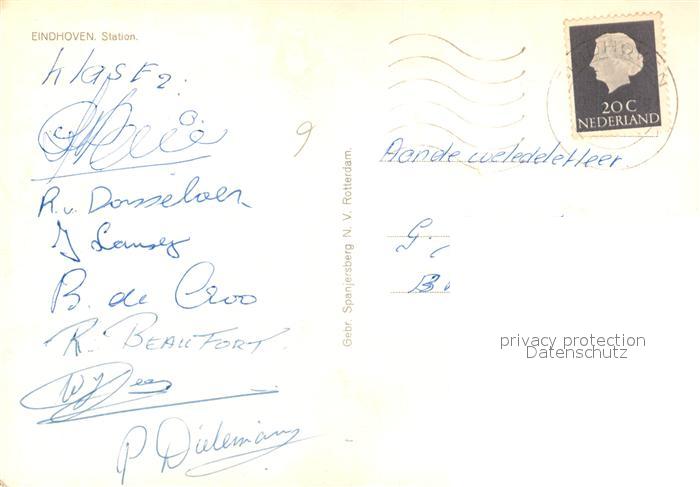 EINDHOVEN. Station.
klas F2.
R. v. Dorsselaer
B. de Croo
R. BEAUFORT.
P Dielemans
9
Gebr. Spanjersberg N. V. Rotterdam.
20 C
NEDERLAND
Aan de weledele Heer
G.
B.
privacy protection
Datenschutz